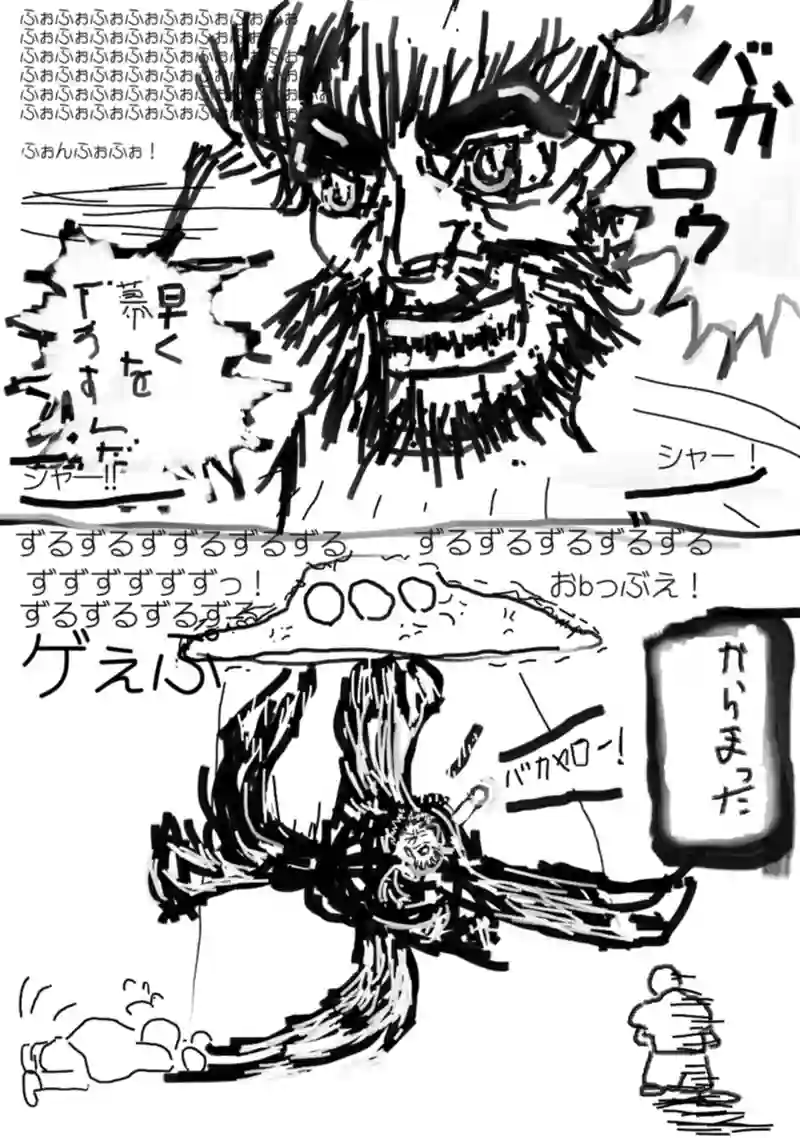 ふぉふぉふぉふぉふぉふぉふぉふぉ
ふぉふぉふぉふぉふぉふぉふぉ
ふぉふぉふぉふぉふぉふぉふぉふぉ
ふぉふぉふぉふぉふぉふぉふぉふぉふぉ
ふぉふぉふぉふぉふぉふぉふぉふぉふぉ
ふぉふぉふぉふぉふぉふぉふぉふぉ
ふぉんふぉふぉ！
バカ
ヤロウ
早く
幕を
下ろすんだ
シャー！
シャー!!
ずるずるずずるずるずる
ずるずるずるずるずる
ずずずずずずっ！
おbっぶえ！
ずるずるずるずる
ゲぇぷ
バカヤロー!
からまった